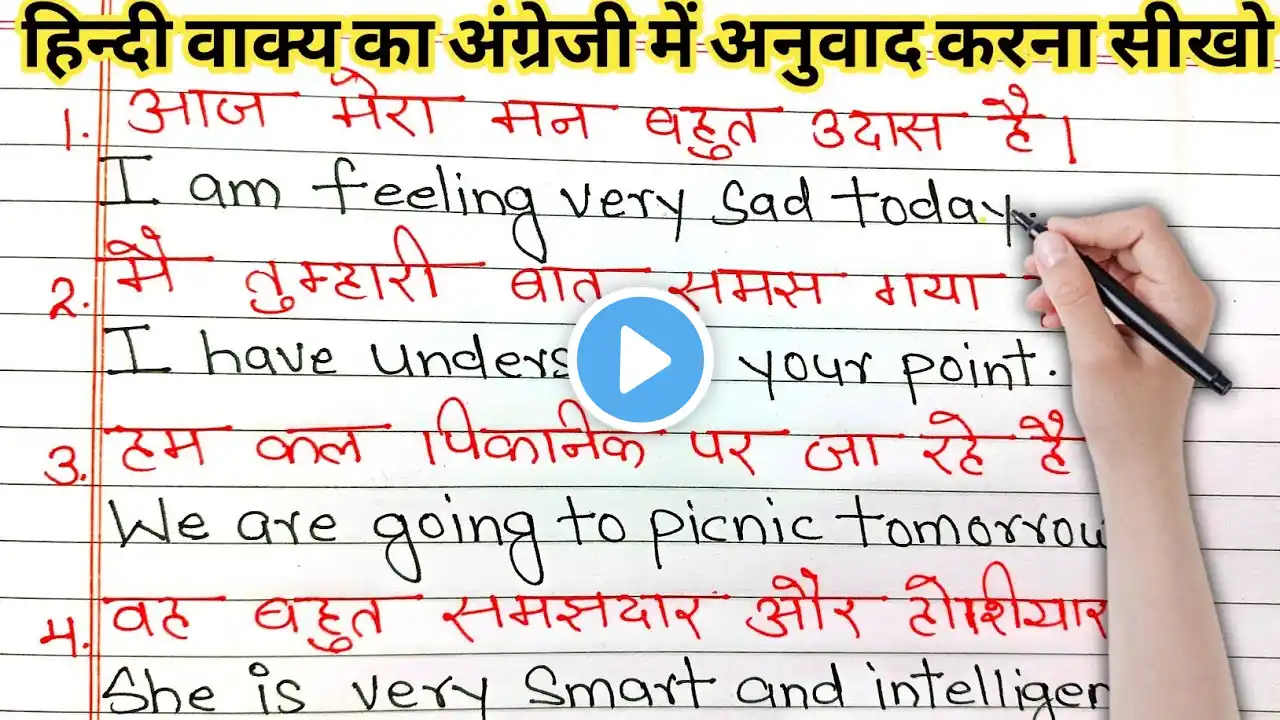 हिन्दी वाक्य का अंग्रेजी में अनुवाद करना सीखो
1. आज मेरा मन बहुत उदास है।
I am feeling very sad today.
2. मै तुम्हारी बात समस गया
I have your point.
3. हम कल पिकानिक पर जा रहे है
We are going to picnic
4. वह बहुत समझदार और होशियार
She is very smart and